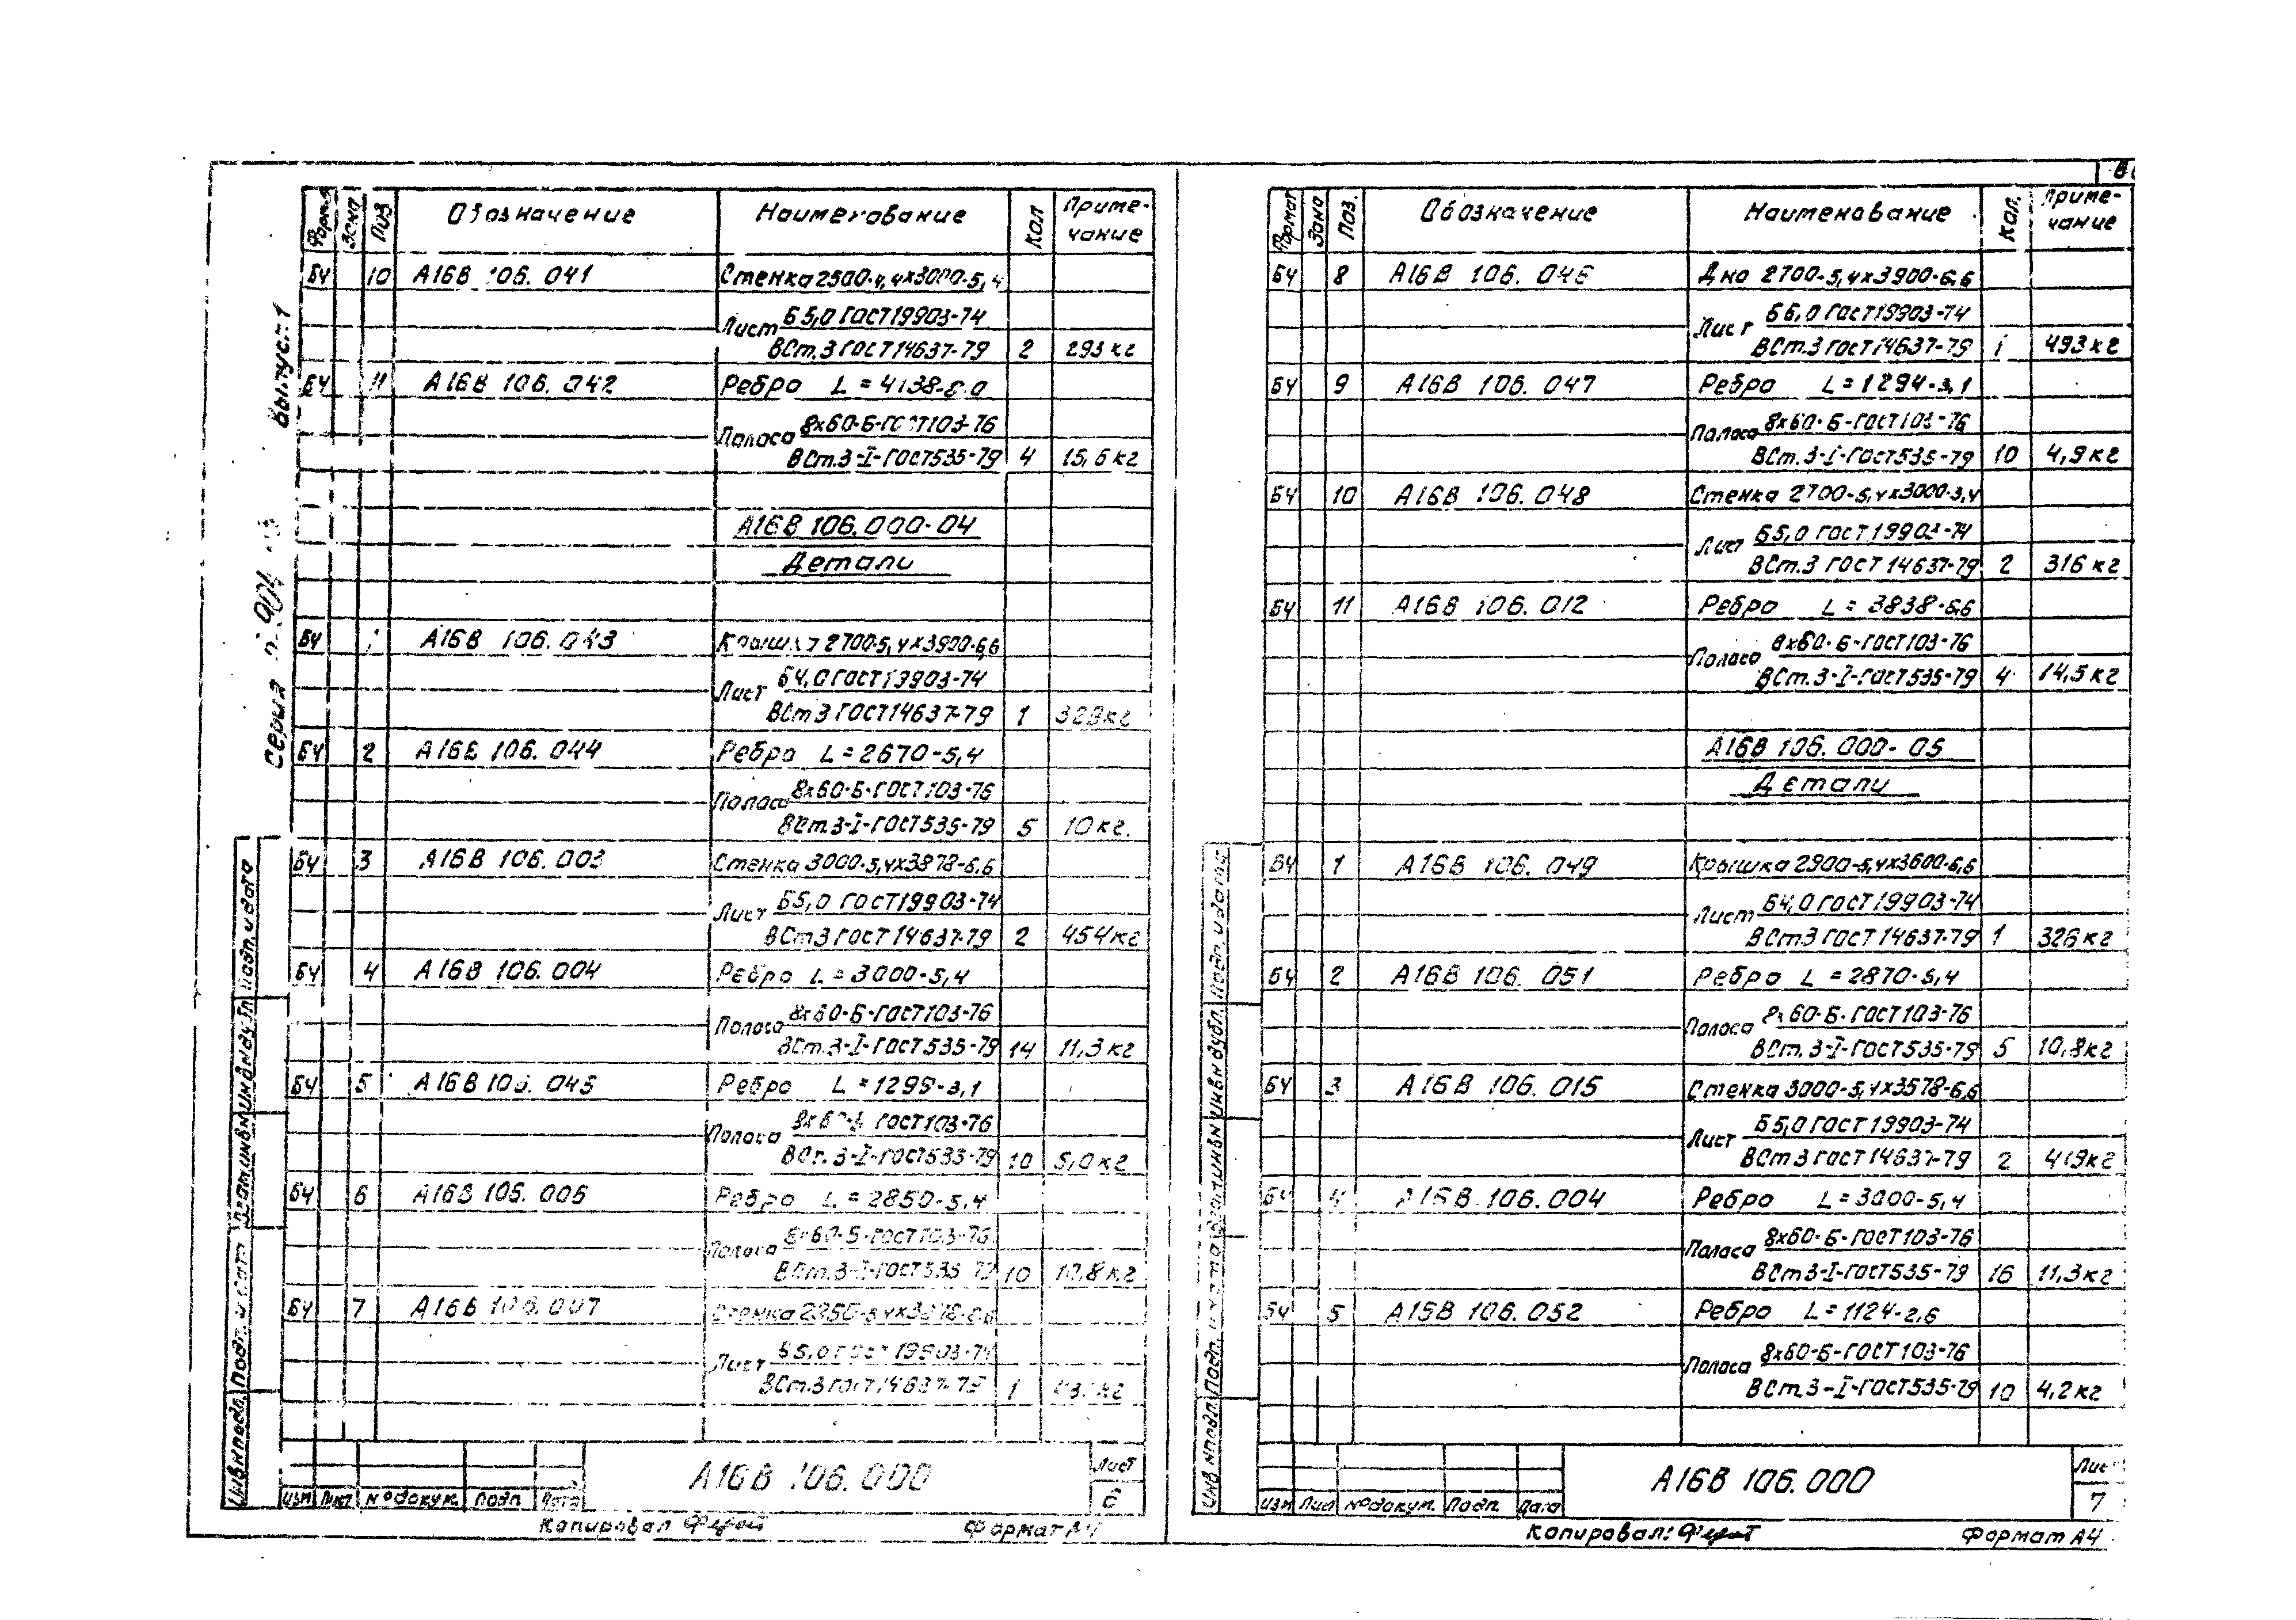 Выпуск 1
Серия
Формат Зона Поз Обозначение Наименование Кол Приме-
чание
БЧ 10 А16В 106.041 Стенка 2500-4,4х3000-5,4
Лист Б5,0 ГОСТ19903-74
ВСт.3 ГОСТ14637-79 2 293 кг
БЧ 11 А16В 106.042 Ребро L=4138-8,0
Полоса 8х60-Б-ГОСТ103-76
ВСт.3-I-ГОСТ535-79 4 15,6 кг
А16В 106.000-04
Детали
БЧ А16В 106.043 Крышка 2700-5,4х3900-6,6
Лист Б4,0 ГОСТ19903-74
ВСт3 ГОСТ14637-79 1 329кг
БЧ 2 А16В 106.044 Ребро L=2670-5,4
Полоса 8х60-Б-ГОСТ103-76
ВСт.3-I-ГОСТ535-79 5 10 кг.
БЧ 3 А16В 106.003 Стенка 3000-5,4х3878-6,6
Лист Б5,0 ГОСТ19903-74
ВСт3 ГОСТ14637-79 2 454кг
БЧ 4 А16В 106.004 Ребро L=3000-5,4
Полоса 8х60-Б-ГОСТ103-76
ВСт.3-I-ГОСТ535-79 14 11,3 кг
БЧ 5 А16В 106.045 Ребро L=1299-3,1
Полоса 8х60-Б ГОСТ103-76
ВСт.3-I-ГОСТ535-79 10 5,0 кг
БЧ 6 А16В 106.006 Ребро L=2850-5,4
Полоса 8х60-Б-ГОСТ103-76
ВСт.3-I-ГОСТ535-79 10 10,8 кг
БЧ 7 А16В 106.007 Стенка
Лист Б5,0 ГОСТ 19903-74
ВСт.3 ГОСТ14637-79 1
Инв№подл. Подп. и дата Взам.инв№ Инв№дубл. Подп. и дата
Изм Лист №докум. Подп Дата
А16В 106.000
Лист
6
Копировал
Формат А4
Формат Зона Поз. Обозначение Наименование Кол. Приме-
чание
БЧ 8 А16В 106.046 Дно 2700-5,4х3900-6,6
Лист Б6,0 ГОСТ19903-74
ВСт.3 ГОСТ14637-79 1 493 кг
БЧ 9 А16В 106.047 Ребро L=1294-3,1
Полоса 8х60-Б-ГОСТ103-76
ВСт.3-I-ГОСТ535-79 10 4,9 кг
БЧ 10 А16В 106.048 Стенка 2700-5,4х3000-3,4
Лист Б5,0 ГОСТ19903-74
ВСт.3 ГОСТ 14637-79 2 316 кг
БЧ 11 А16В 106.012 Ребро L=3838-6,6
Полоса 8х60-Б-ГОСТ103-76
ВСт.3-I-ГОСТ535-79 4 14,5 кг
А16В 106.000-05
Детали
БЧ 1 А16В 106.049 Крышка 2900-5,4х3600-6,6
Лист Б4,0 ГОСТ19903-74
ВСт3 ГОСТ 14637-79 1 326 кг
БЧ 2 А16В 106.051 Ребро L=2870-5,4
Полоса 8х60-Б-ГОСТ103-76
ВСт.3-I-ГОСТ535-79 5 10,8кг
БЧ 3 А16В 106.015 Стенка 3000-5,4х3578-6,6
Лист Б5,0 ГОСТ 19903-74
ВСт3 ГОСТ14637-79 2 419кг
БЧ 4 А16В 106.004 Ребро L=3000-5,4
Полоса 8х60-Б-ГОСТ103-76
ВСт3-I-ГОСТ535-79 16 11,3кг
БЧ 5 А16В 106.052 Ребро L=1124-2,6
Полоса 8х60-Б-ГОСТ103-76
ВСт.3-I-ГОСТ535-79 10 4,2 кг
Инв.№подл. Подп. и дата Взам.инв№ Инв№дубл. Подп. и дата
Изм Лист №докум. Подп. Дата
А16В 106.000
Лис
7
Копировал:
Формат А4